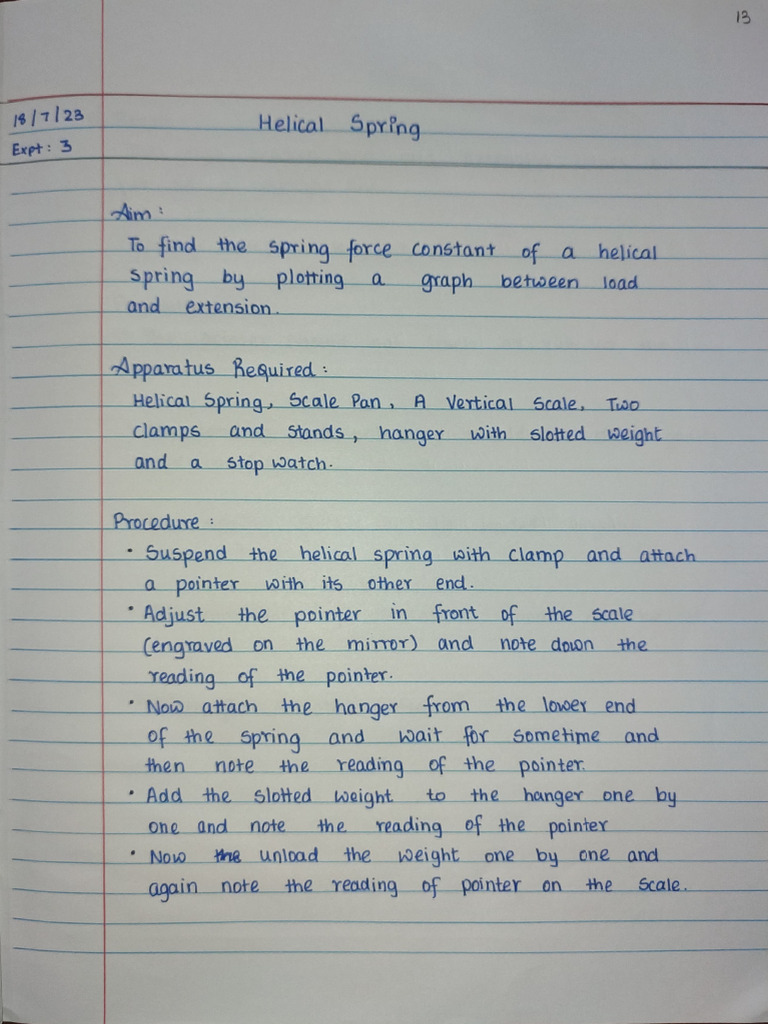 13
18/7/23
Expt: 3
Helical Spring
Aim:
To find the spring force constant of a helical
spring by plotting a graph between load
and extension.
Apparatus Required:
Helical Spring, Scale Pan, A Vertical Scale, Two
clamps and stands, hanger with slotted weight
and a stop watch.
Procedure:
• Suspend the helical spring with clamp and attach
a pointer with its other end.
• Adjust the pointer in front of the scale
(engraved on the mirror) and note down the
reading of the pointer.
• Now attach the hanger from the lower end
of the spring and wait for sometime and
then note the reading of the pointer.
• Add the slotted weight to the hanger one by
one and note the reading of the pointer
• Now the unload the weight one by one and
again note the reading of pointer on the scale.